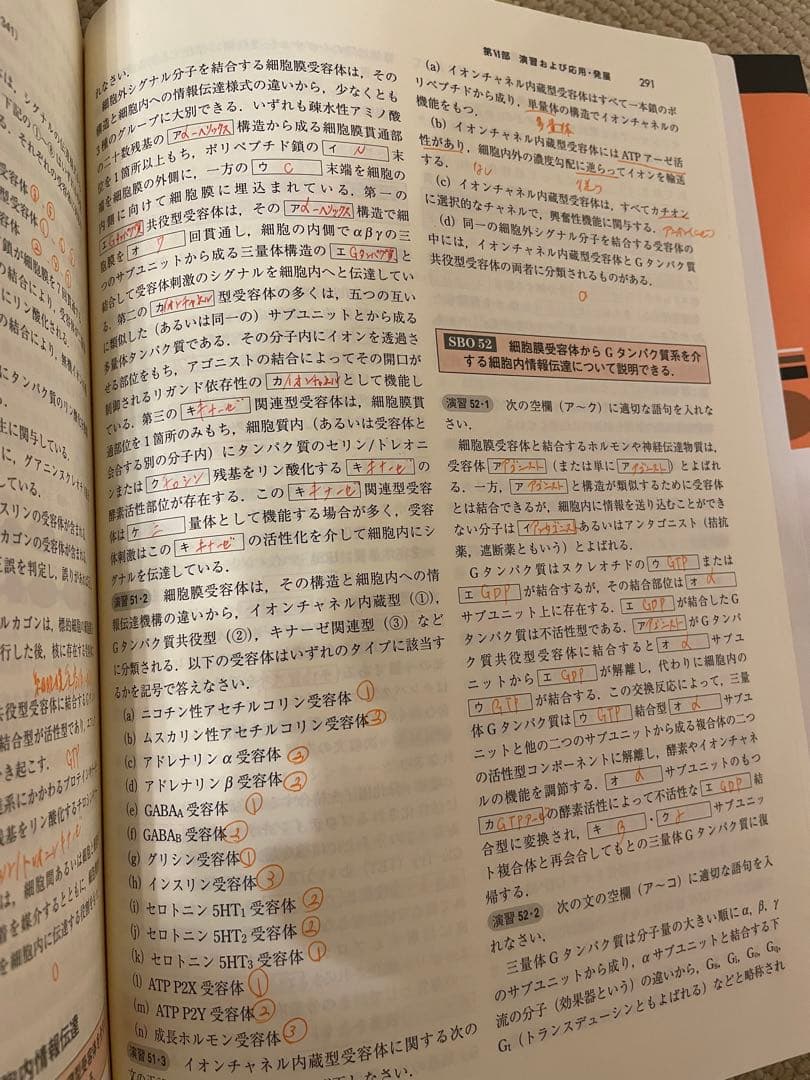 341)
れなさい.
細胞外シグナル分子を結合する細胞膜受容体は,その
構造と細胞内への情報伝達様式の違いから,少なくとも
3種のグループに大別できる.いずれも疎水性アミノ酸
の二十数残基の ア α-ヘリックス 構造から成る細胞膜貫通部
位を1箇所以上もち,ポリペプチド鎖の イ N 末
端を細胞膜の外側に,一方の ウ C 末端を細胞の
内側に向けて細胞膜に埋込まれている.第一の
エ Gタンパク質 共役型受容体は,その ア α-ヘリックス 構造で細
胞膜を オ 7 回貫通し,細胞の内側でαβγの三
つのサブユニットから成る三量体構造の エ Gタンパク質 と
結合して受容体刺激のシグナルを細胞内へと伝達してい
る.第二の カ イオンチャネル 型受容体の多くは,五つの互い
に類似した(あるいは同一の)サブユニットとから成る
多量体タンパク質である.その分子内にイオンを透過さ
せる部位をもち,アゴニストの結合によってその開口が
制御されるリガンド依存性の カ イオンチャネル として機能し
ている.第三の キ キナーゼ 関連型受容体は,細胞膜貫
通部位を1箇所のみもち,細胞質内(あるいは受容体と
会合する別の分子内)にタンパク質のセリン/トレオニ
ンまたは ク チロシン 残基をリン酸化する キ キナーゼ の
酵素活性部位が存在する.この キ キナーゼ 関連型受容
体は ケ 二 量体として機能する場合が多く,受容
体刺激はこの キ キナーゼ の活性化を介して細胞内にシ
グナルを伝達している.
演習 51・2 細胞膜受容体は,その構造と細胞内への情
報伝達機構の違いから,イオンチャネル内蔵型(①),
Gタンパク質共役型(②),キナーゼ関連型(③)など
に分類される.以下の受容体はいずれのタイプに該当す
るかを記号で答えなさい.
(a) ニコチン性アセチルコリン受容体 ①
(b) ムスカリン性アセチルコリン受容体 ②
(c) アドレナリンα受容体 ②
(d) アドレナリンβ受容体 ②
(e) GABAA受容体 ①
(f) GABAB受容体 ②
(g) グリシン受容体 ①
(h) インスリン受容体 ③
(i) セロトニン 5HT1 受容体 ②
(j) セロトニン 5HT2 受容体 ②
(k) セロトニン 5HT3 受容体 ①
(l) ATP P2X 受容体 ①
(m) ATP P2Y 受容体 ②
(n) 成長ホルモン受容体 ③
演習 51・3 イオンチャネル内蔵型受容体に関する次の
第VI部 演習および応用・発展 291
(a) イオンチャネル内蔵型受容体はすべて一本鎖のポ
リペプチドから成り,単量体の構造でイオンチャネルの
機能をもつ. 多量体
(b) イオンチャネル内蔵型受容体にはATPアーゼ活
性があり,細胞内外の濃度勾配に逆らってイオンを輸送
する. なし 従って
(c) イオンチャネル内蔵型受容体は,すべてカチオン
に選択的なチャネルで,興奮性機能に関与する.
(d) 同一の細胞外シグナル分子を結合する受容体の
中には,イオンチャネル内蔵型受容体とGタンパク質
共役型受容体の両者に分類されるものがある.
○
SBO 52 細胞膜受容体からGタンパク質系を介
する細胞内情報伝達について説明できる.
演習 52・1 次の空欄(ア〜ク)に適切な語句を入れな
さい.
細胞膜受容体と結合するホルモンや神経伝達物質は,
受容体 ア アゴニスト (または単に ア アゴニスト )とよばれ
る.一方, ア アゴニスト と構造が類似するために受容体
とは結合できるが,細胞内に情報を送り込むことができ
ない分子は イ アンタゴニスト あるいはアンタゴニスト(拮抗
薬,遮断薬ともいう)とよばれる.
Gタンパク質はヌクレオチドの ウ GTP または
エ GDP が結合するが,その結合部位は オ α
サブユニット上に存在する. エ GDP が結合したG
タンパク質は不活性型である. ア アゴニスト がGタンパ
ク質共役型受容体に結合すると オ α サブユ
ニットから エ GDP が解離し,代わりに細胞内の
ウ GTP が結合する.この交換反応によって,三量
体Gタンパク質は ウ GTP 結合型 オ α サブユ
ニットと他の二つのサブユニットから成る複合体の二つ
の活性型コンポーネントに解離し,酵素やイオンチャネ
ルの機能を調節する. オ α サブユニットのもつ
カ GTPアーゼ の酵素活性によって不活性な エ GDP 結
合型に変換され, キ β ・ ク γ サブユニッ
ト複合体と再会合してもとの三量体Gタンパク質に復
帰する.
演習 52・2 次の文の空欄(ア〜コ)に適切な語句を入
れなさい.
三量体Gタンパク質は分子量の大きい順にα,β,γ
のサブユニットから成り,αサブユニットと結合する下
流の分子(効果器という)の違いから,Gs, Gi, Go, Gq,
Gt(トランスデューシンともよばれる)などと略称され